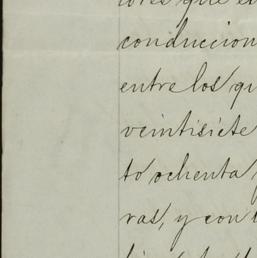 ores que e
conduccion
entre los qu
veintisiete
to ochenta
ras, y con